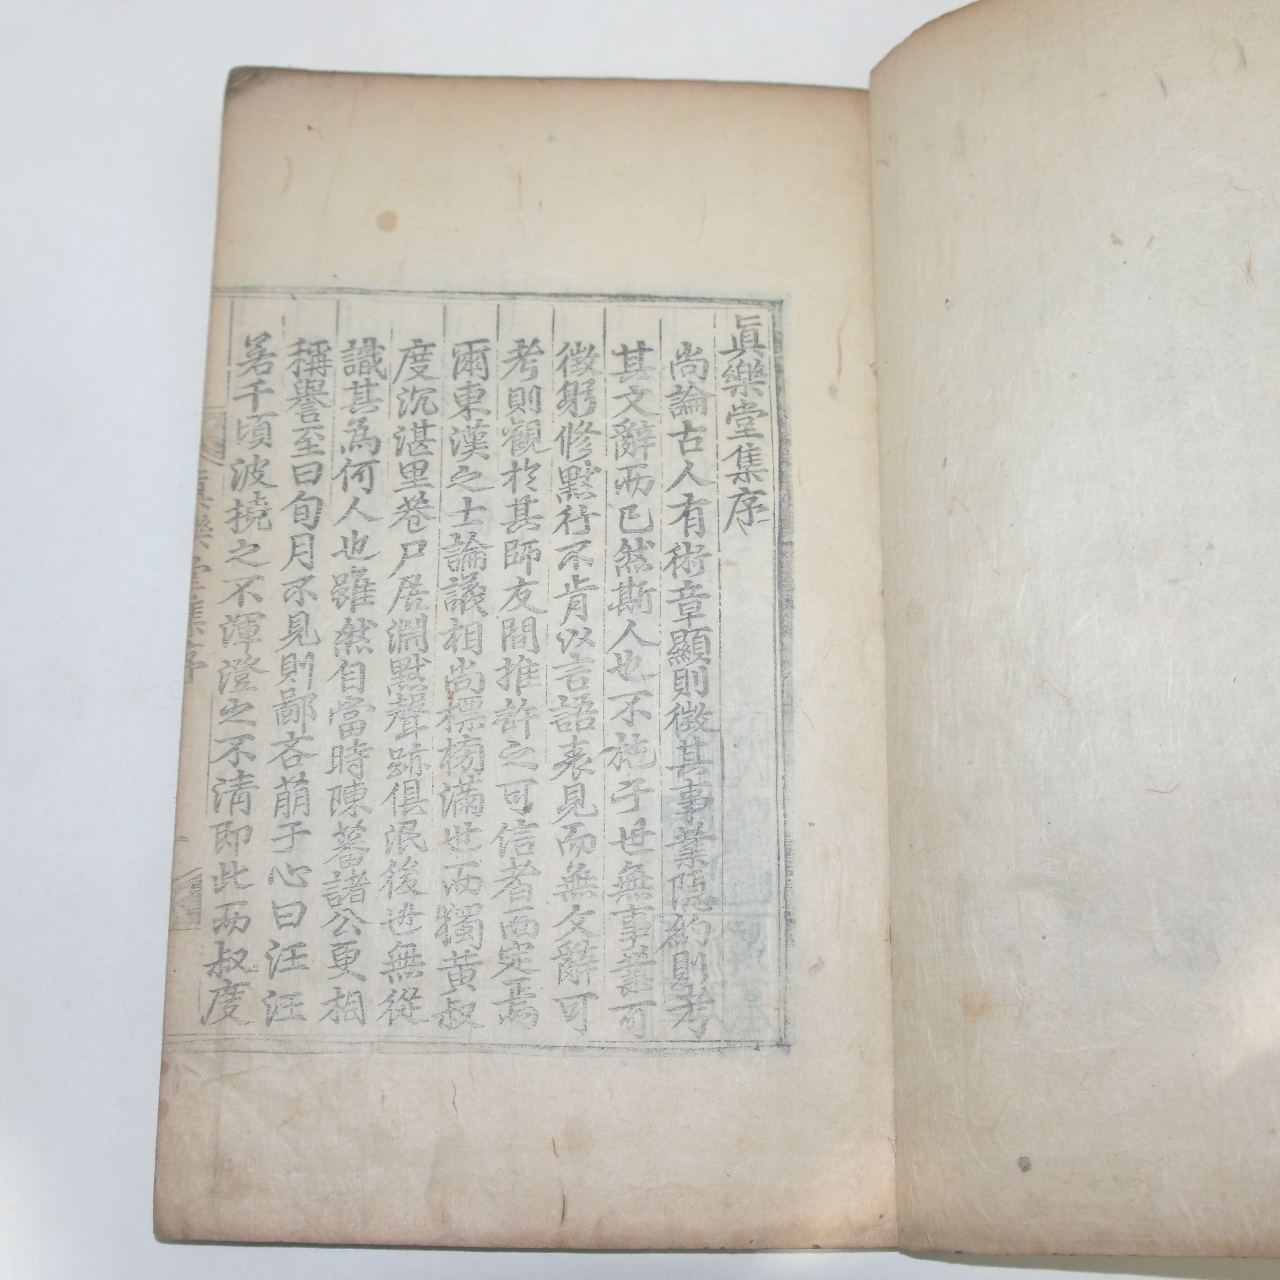 眞樂堂集序
尚論古人有術章顯則徵其事業隱約則考
其文辭而已然斯人也不施于世無事業可
徵躬修默行不肯以言語表見而無文辭可
考則觀於其師友間推許之可信者而定焉
爾東漢之士論議相尚標榜滿世而獨黃叔
度沉湛里巷尸居淵默聲跡俱泯後世無從
識其為何人也雖然自當時陳蕃諸公更相
稱譽至曰旬月不見則鄙吝萌于心曰汪汪
若千頃波撓之不渾澄之不清即此而叔度
眞樂堂集序